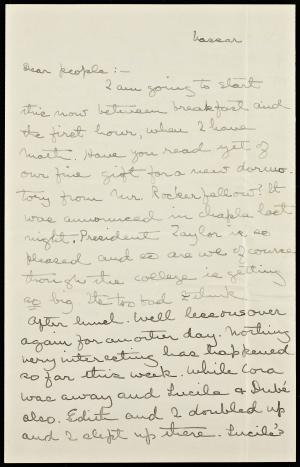 Vassar
Dear people:-
I am going to start
this now between breakfast and
the first hour, when I have
math. Have you read yet of
our fine gift for a new dormi-
tory from Mr. Rockerfellow? It
was announced in chapel last
night. President Taylor is so
pleased and so are we of course
though the college is getting
so big its too bad I think
After lunch. Well lessons over
again for another day. Nothing
very interesting has happened
so far this week. While Cora
was away and Lucila & Dubé
also. Edith and I doubled up
and I slept up there. Lucile's